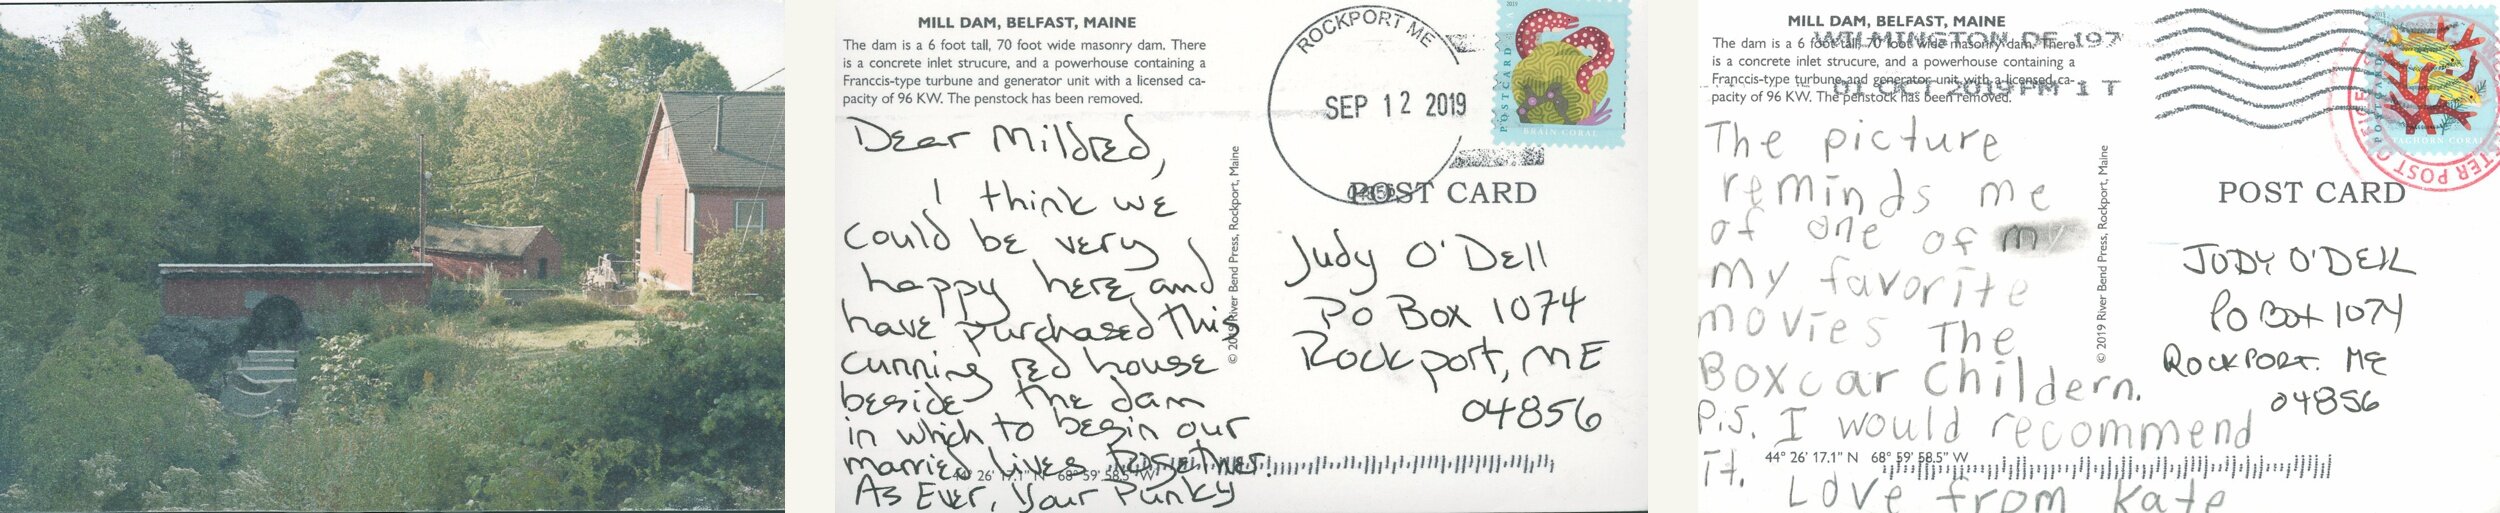 MILL DAM, BELFAST, MAINE
The dam is a 6 foot tall, 70 foot wide masonry dam. There
is a concrete inlet strucure, and a powerhouse containing a
Franccis-type turbune and generator unit with a licensed ca-
pacity of 96 KW. The penstock has been removed.
Dear Mildred,
I think we
could be very
happy here and
have purchased this
cunning red house
beside the dam
in which to begin our
married lives together!
As Ever, Your Punky
44° 26' 17.1" N 68° 59' 58.5" W
© 2019 River Bend Press, Rockport, Maine
ROCKPORT ME
SEP 12 2019
04856
2019
POSTCARD USA
BRAIN CORAL
POST CARD
Judy O'Dell
Po Box 1074
Rockport, ME
04856
MILL DAM, BELFAST, MAINE
The dam is a 6 foot tall, 70 foot wide masonry dam. There
is a concrete inlet strucure, and a powerhouse containing a
Franccis-type turbune and generator unit with a licensed ca-
pacity of 96 KW. The penstock has been removed.
WILMINGTON DE 197
01 OCT 2019 PM 1 T
The picture
reminds me
of one of my
my favorite
movies The
Boxcar Childern.
P.S. I would recommend
it.
44° 26' 17.1" N 68° 59' 58.5" W
Love from Kate
© 2019 River Bend Press, Rockport, Maine
POSTCARD
STAGHORN CORAL
POST OFFICE
POST CARD
JUDY O'DELL
PO Box 1074
ROCKPORT. ME
04856